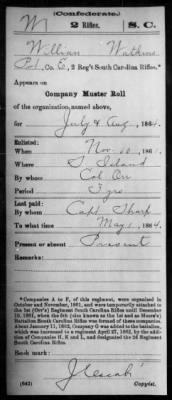 (Confederate.)
W 2 Rifles. S. C.
William Watkins
Pvt, Co. E, 2 Reg't South Carolina Rifles.*
Appears on
Company Muster Roll
of the organization named above,
for July & Aug, 1864.
Enlisted:
When Nov 20, 1861.
Where S Island
By whom Col Orr
Period 3 yrs
Last paid:
By whom Capt Sharp
To what time May 1, 1864.
Present or absent Present
Remarks:
*Companies A to F, of this regiment, were organized in
October and November, 1861, and were temporarily attached to
the 1st (Orr's) Regiment South Carolina Rifles until December
Battalion South Carolina Rifles was formed of these companies.
About January 11, 1862, Company G was added to the battalion,
which was increased to a regiment April 27, 1862, by the addi-
tion of Companies H, K and L, and designated the 2d Regiment
South Carolina Rifles.
Book mark:
(642) Copyist.